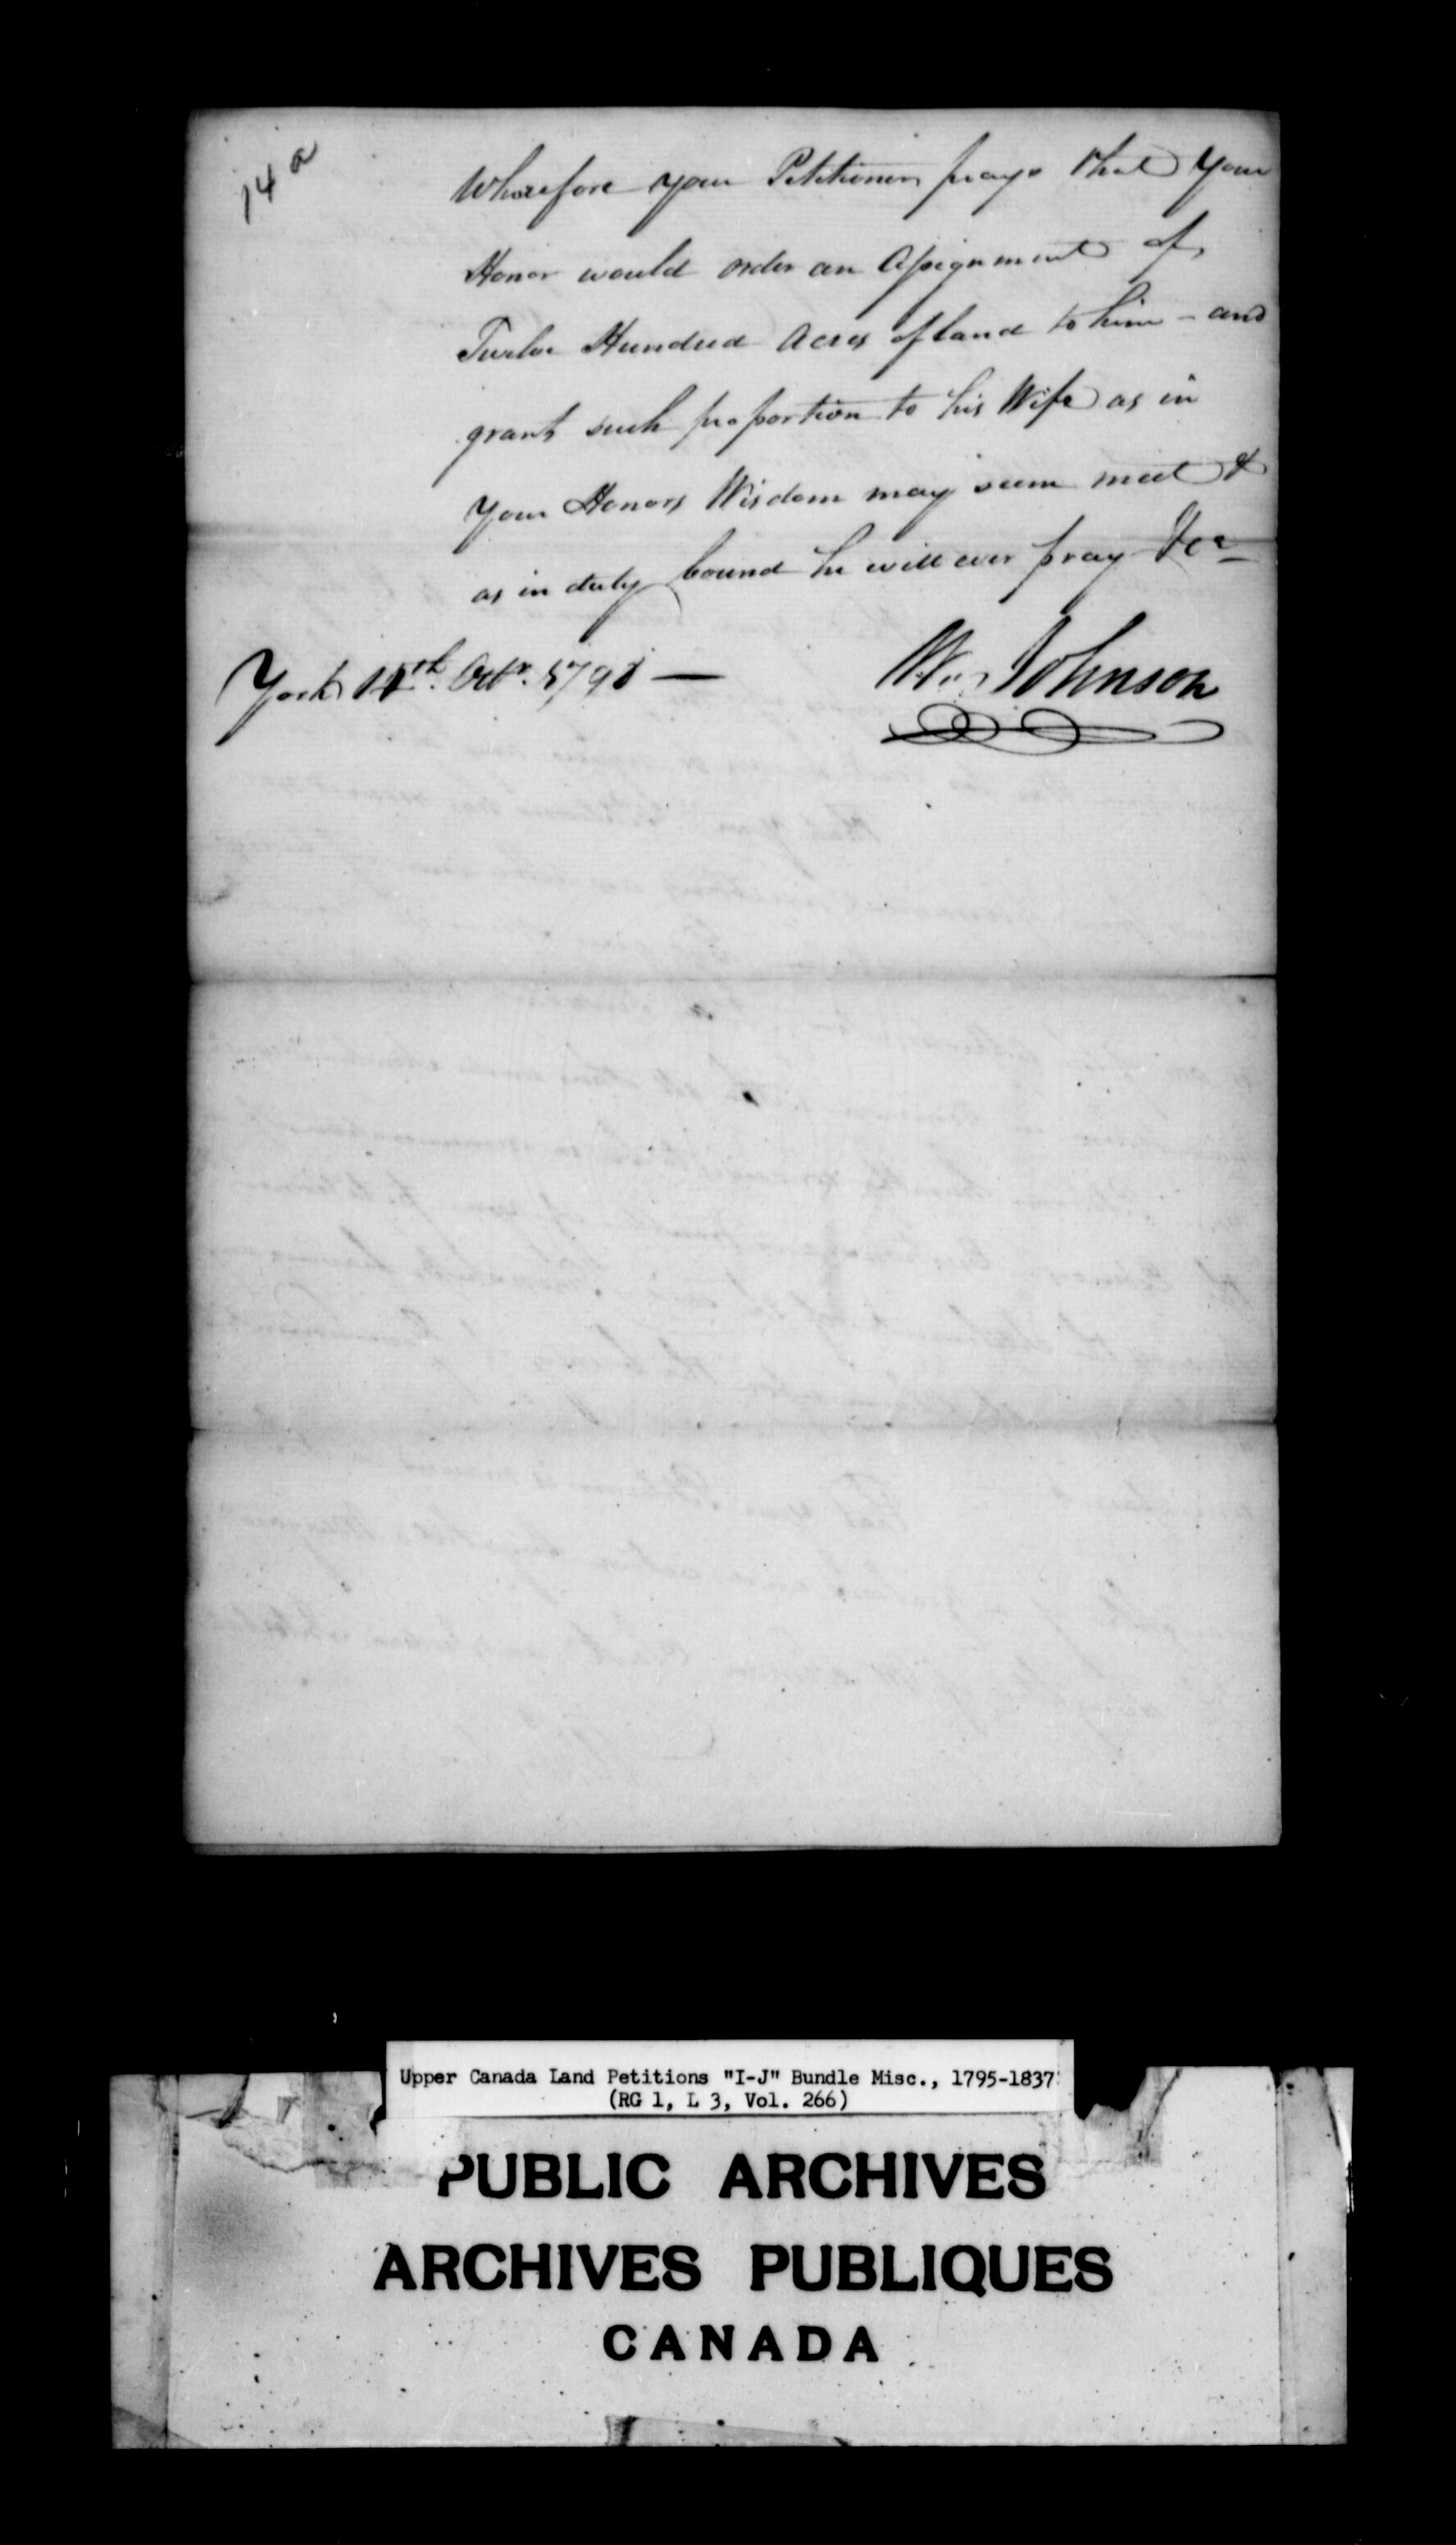 14 a
Wherefore your Petitioner prays that Your
Honor would order an Assignment of
Twelve Hundred Acres of land to him – and
grant such proportion to his Wife as in
Your Honors Wisdom may seem meet &
as in duty bound he will ever pray &ca
York Octr. —
Wm Johnson
Upper Canada Land Petitions "I-J" Bundle Misc., 1795-1837
(RG 1, L 3, Vol. 266)
PUBLIC ARCHIVES
ARCHIVES PUBLIQUES
CANADA